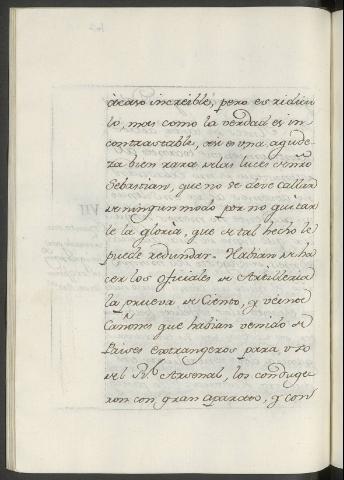 àcaso increible, pero es ridicu
lo, mas como la verdad es in
contrastable, y es una agude-
za bien rara de las luces de nr̃o
Sebastian, que no se deve callar
de ningun modo por no quitar
le la gloria, que de tal hecho le
puede redundar. Habian de ha
cer los Oficiales de Artilleria
la prueva de Ciento, y veinte
Cañones que habian venido de
Paises extrangeros para uso
del Rl. Arsenal, los conduge-
ron con gran aparato, y con